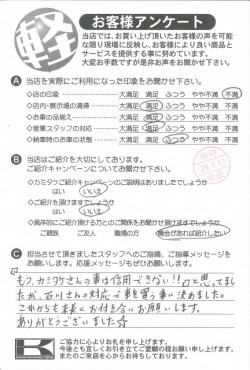 軽
お客様アンケート
当店では、お買い上げ頂いたお客様の声を可能
な限り現場に反映し、お客様により良い商品と
サービスを提供する事に努めています。
大変お手数ですが是非お声をお聞かせ下さい。
A 当店を実際にご利用になった印象をお聞かせ下さい。
◇店の印象 大満足 満足 ふつう やや不満 不満
◇店内・展示場の清掃 大満足 満足 ふつう やや不満 不満
◇お車の品揃え 大満足 満足 ふつう やや不満 不満
◇営業スタッフの対応 大満足 満足 ふつう やや不満 不満
◇納車時のお車の状態 大満足 満足 ふつう やや不満 不満
B 当店はご紹介を大切にしております。
ご紹介キャンペーンについてお聞かせ下さい。
◇カミタケご紹介キャンペーンのご説明はありましたでしょうか
はい いいえ
◇ご紹介を頂けますでしょうか
はい いいえ
◇具体的にご紹介頂ける方とのご関係をお聞かせ頂けますでしょうか
ご親族 ご友人 職場の方 機会があれば紹介したい
C 担当させて頂きましたスタッフへのご指摘、ご指導メッセージを
お願いします。応援メッセージもぜひお願いします。
もう、カミタケさんの事は信用できない!!と思ってまし
たが、石川さんの対応で車を買う事に決めました。
これからも末永くお付き合いお願いします。
ありがとうございました
K
ご協力に心よりお礼を申し上げます。
今後とも宜しくお引き立てご愛顧の程お願い申し上げます。
またのご来店を心からお待ちしております。